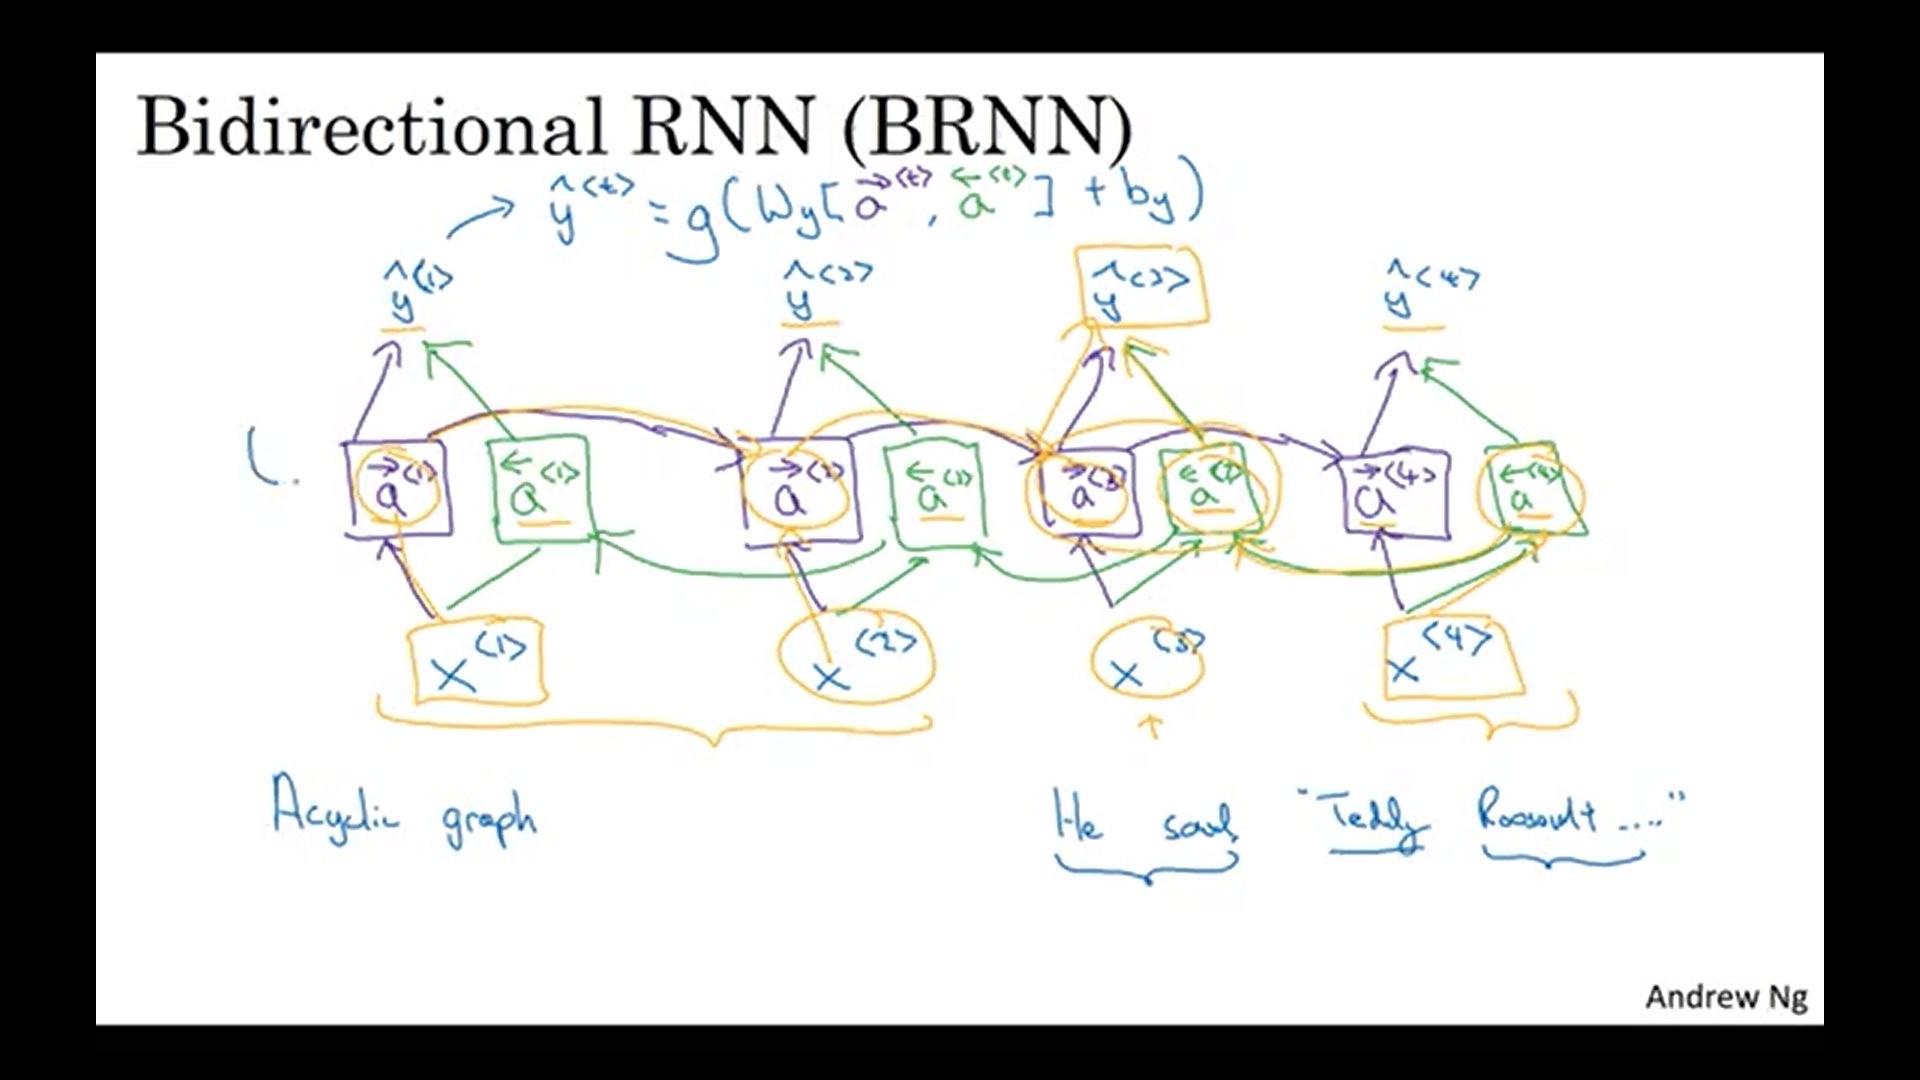 Bidirectional RNN (BRNN)
ŷ<t> = g(Wy[a→<t>, a←<t>] + by)
ŷ<1> ŷ<2> ŷ<3> ŷ<4>
a→<1> a←<1> a→<2> a←<2> a→<3> a←<3> a→<4> a←<4>
x<1> x<2> x<3> x<4>
Acyclic graph He said, "Teddy Roosevelt ...."
Andrew Ng